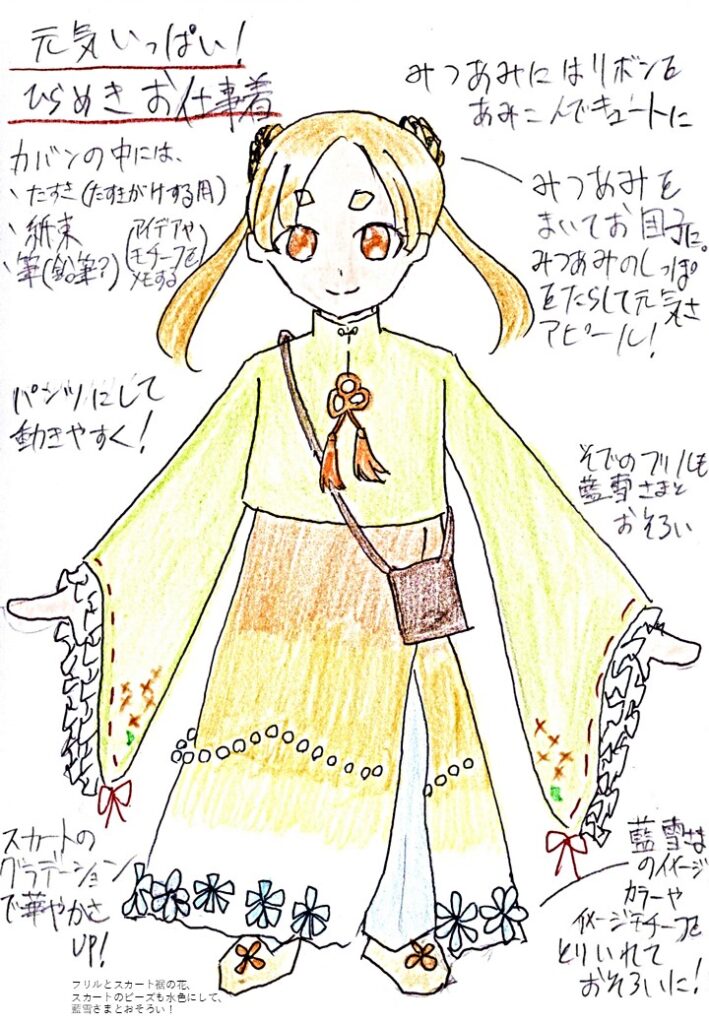 元気いっぱい!
ひらめきお仕事着
みつあみにはリボンを
あみこんでキュートに
カバンの中には、
、たすき(たすきがけする用)
、紙束
、筆(鉛筆?)
(アイデアや
モチーフを
メモする)
みつあみを
まいてお団子に。
みつあみのしっぽ
をたらして元気さ
アピール!
パンツにして
動きやすく!
そでのフリルも
藍雪さまと
おそろい
スカートの
グラデーション
で華やかさ
UP!
藍雪さま
のイメージ
カラーや
イメージモチーフを
とりいれて
おそろいに!
フリルとスカート裾の花、
スカートのビーズも水色にして、
藍雪さまとおそろい!